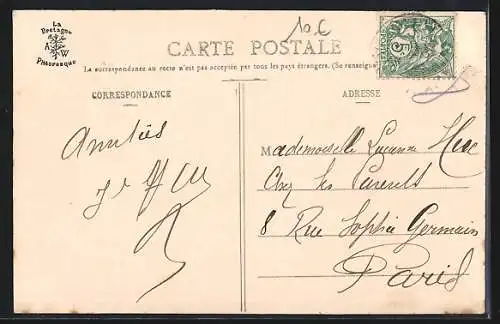 La
Bretagne
A W
Pittoresque
10 C
CARTE POSTALE
La correspondance au recto n'est pas acceptée par tous les pays étrangers. (Se renseigner
CORRESPONDANCE
ADRESSE
5
Amitiés
Mademoiselle
Chez les Parents
8 Rue Sophie Germain
Paris